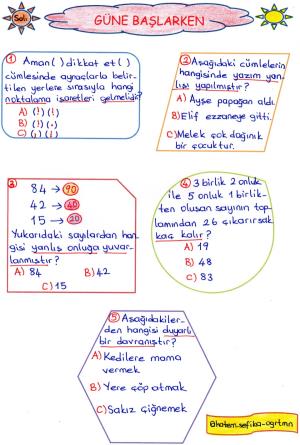 Salı
GÜNE BAŞLARKEN
1 Aman( ) dikkat et( )
cümlesinde ayraçlarla belir-
tilen yerlere sırasıyla hangi
noktalama işaretleri gelmelidir?
A) (!) (!)
B) (!) (.)
C) (;) (!)
2 Aşağıdaki cümlelerin
hangisinde yazım yan-
lışı yapılmıştır?
A) Ayşe papağan aldı.
B) Elif ezzaneye gitti.
C) Melek çok dağınık
bir çocuktur.
3
84 → 90
42 → 40
15 → 20
Yukarıdaki sayılardan han-
gisi yanlış onluğa yuvar-
lanmıştır?
A) 84 B) 42
C) 15
4 3 birlik 2 onluk
ile 5 onluk 1 birlik-
ten oluşan sayının top-
lamından 26 çıkarırsak
kaç kalır?
A) 19
B) 48
C) 83
5 Aşağıdakiler-
den hangisi duyarlı
bir davranıştır?
A) Kedilere mama
vermek
B) Yere çöp atmak
C) Sakız çiğnemek